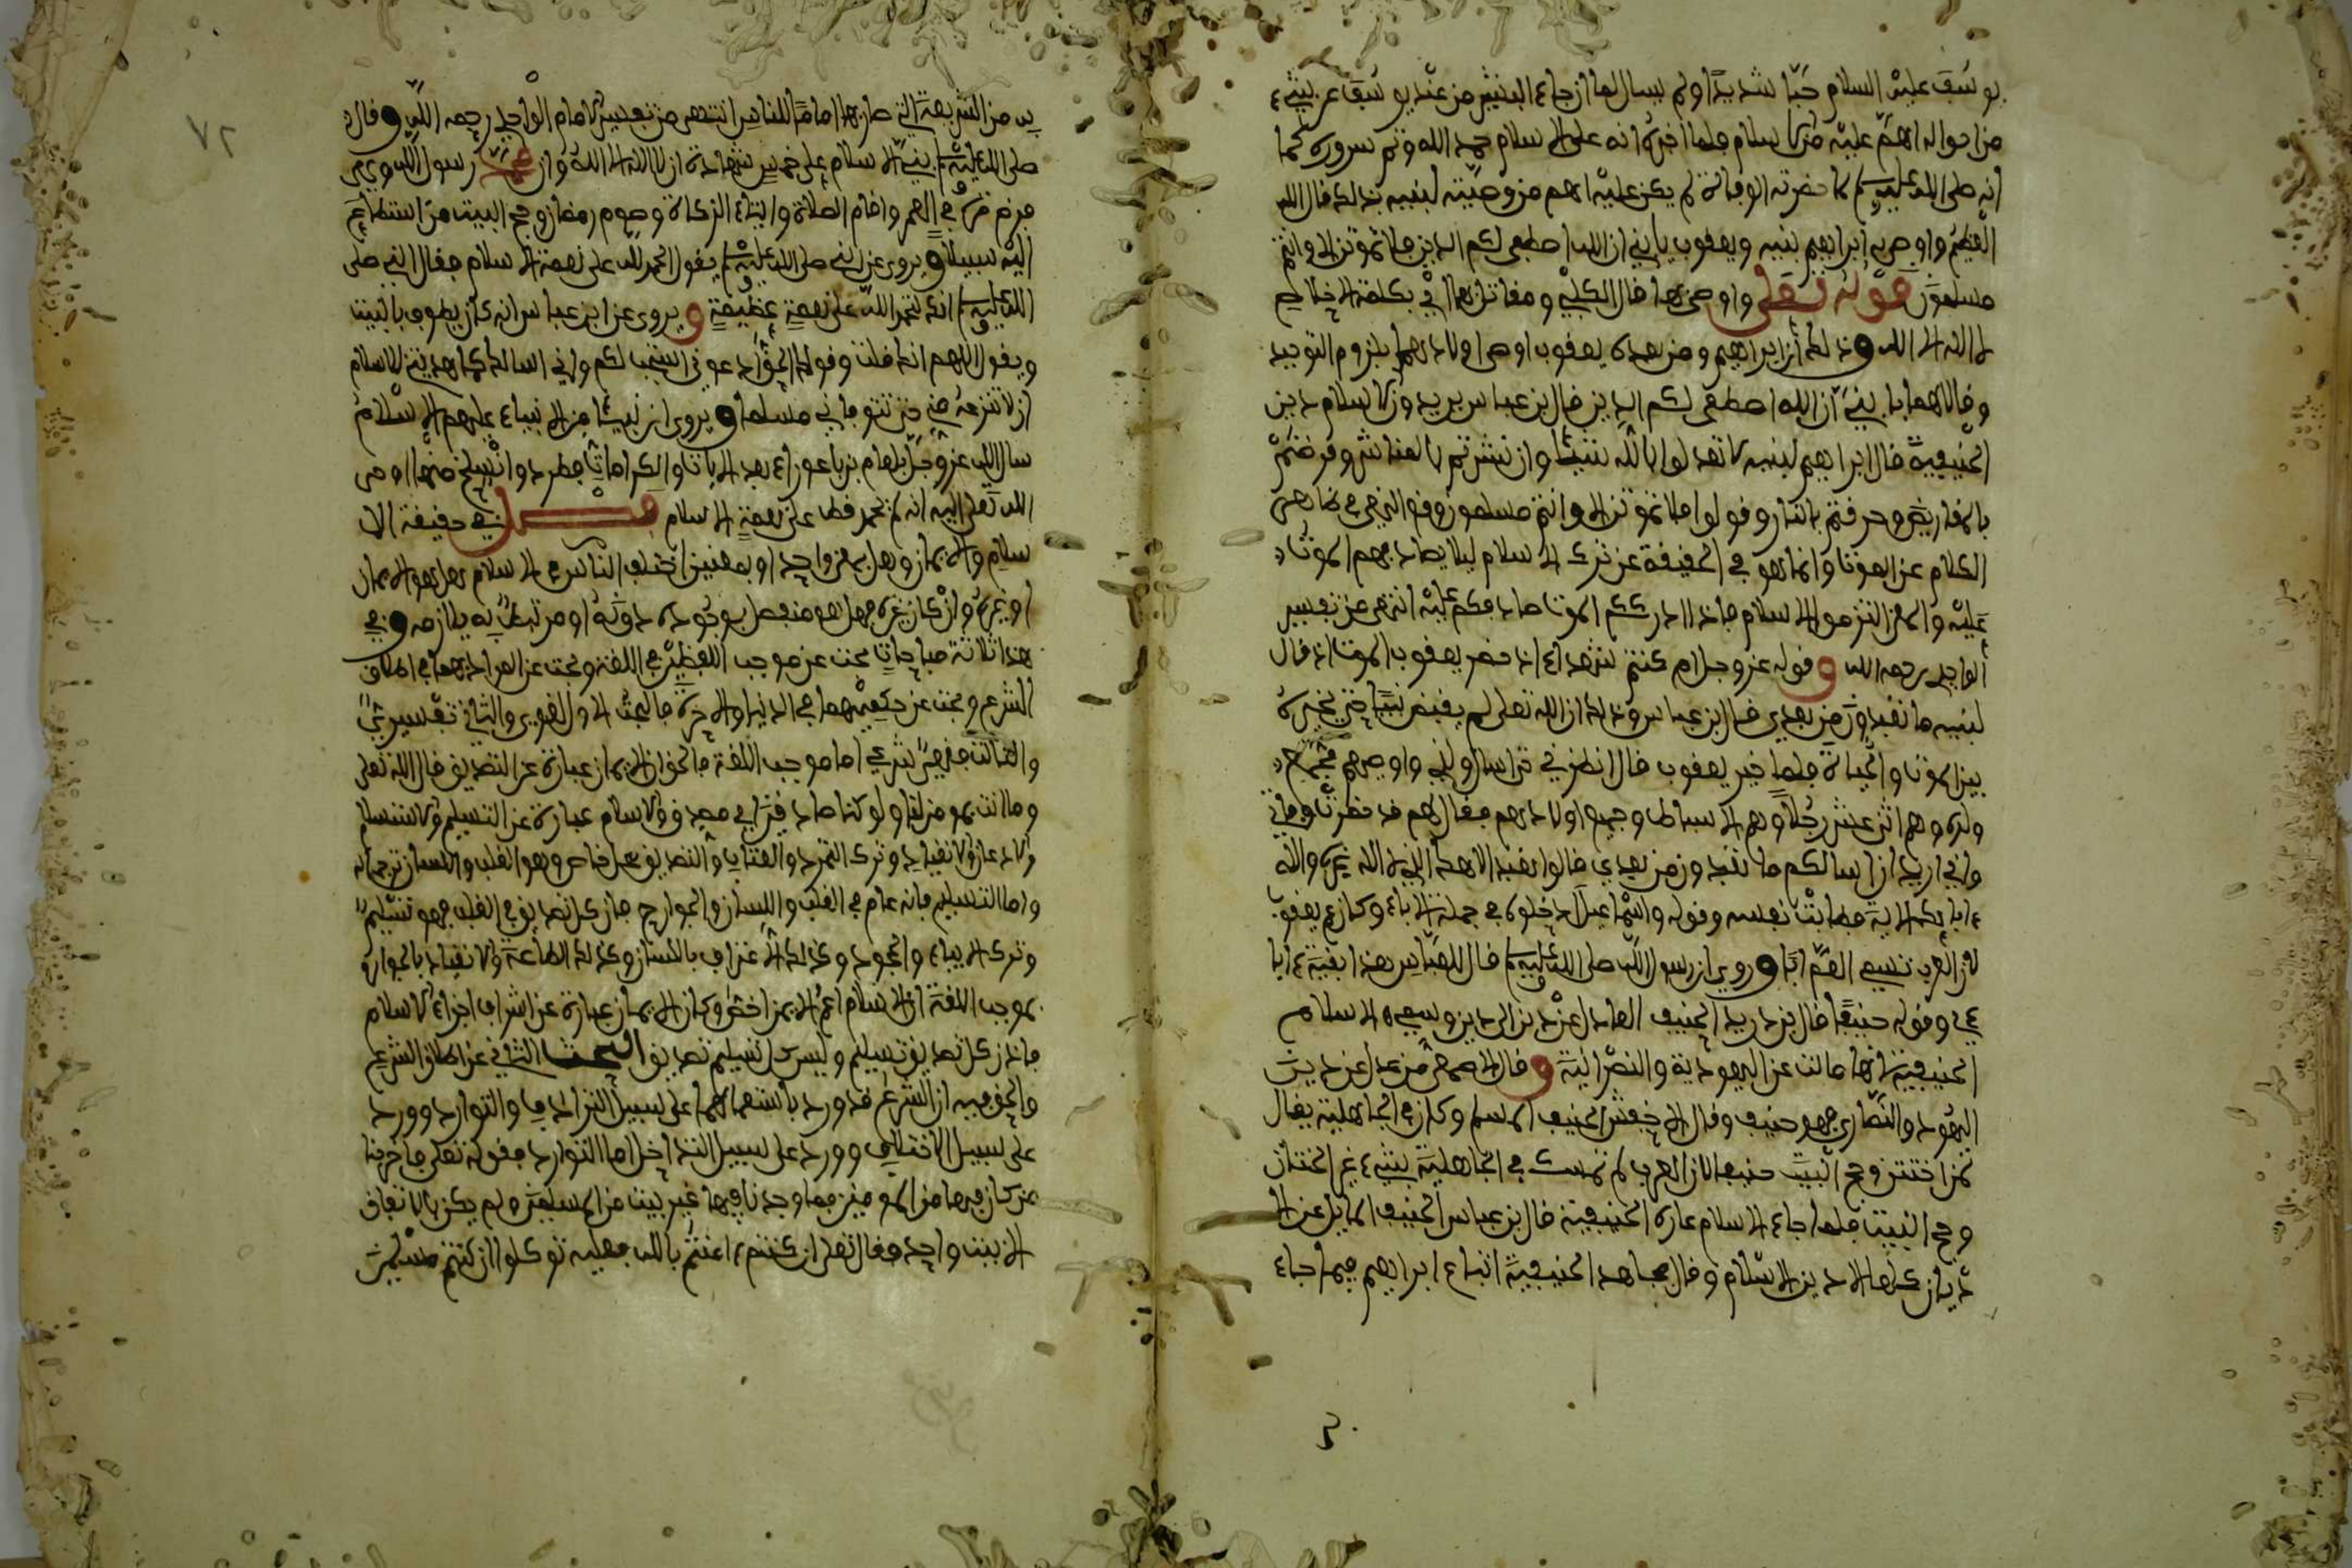 يوسف عليه السلام حبا شديدا ولم يسال لما ان جاء البشير من عند يوسف عن شيء
من احواله اهم عليه من الاسلام فلما اخبره انه على الاسلام حمد الله وتم سروره كما
انه صلى الله عليه وسلم لما حضرته الوفاة لم يكن عليه اهم من وصيته لبنيه بذلك قال الله
العظيم واوصى بها ابراهيم بنيه ويعقوب يا بني ان الله اصطفى لكم الدين فلا تموتن الا وانتم
مسلمون قوله تعلى واوصى بها قال الكلبي ومقاتل بها اي بكلمة الاخلاص
لا اله الا الله وذلك ان ابراهيم ومن بعده يعقوب اوصى اولادهما بلزوم التوحيد
وقالا لهما يا بني ان الله اصطفى لكم الدين قال بن عباس يريد دين الاسلام دين
الحنيفية قال ابراهيم لبنيه لا تعدلوا بالله شيئا وان نشرتم بالمناشر وقرضتم
بالمقاريض وحرقتم بالنار وقوله فلا تموتن الا وانتم مسلمون وقع النهي في ظاهر
الكلام عن الموت وانما هو في الحقيقة عن ترك الاسلام ليلا يصادفهم الموت
عليه والمعنى التزموا الاسلام فاذا ادرككم الموت صادفكم عليه انتهى من تفسير
الواحدي رحمه الله وقوله عز وجل ام كنتم شهداء اذ حضر يعقوب الموت اذ قال
لبنيه ما تعبدون من بعدي قال ابن عباس وذلك ان الله تعلى لم يقبض نبيا حتى يخيره
بين الموت والحياة فلما خير يعقوب قال انظرني حتى اسال ولدي واوصيهم فجمع
ولده وهم اثنى عشر رجلا وهم الاسباط وجميع اولادهم فقال لهم قد حضرت وفاتي
واني اريد ان اسالكم ما تعبدون من بعدي قالوا نعبد الاهك الذي لا اله غيره واله
ءابايك الاية فطابت نفسه وقوله واسماعيل ادخلوه في جملة الاباء وكان عم يعقوب
لان العرب تسمي العم ابا وروي ان رسول الله صلى الله عليه وسلم قال للعباس هذا بقية ءابا
ءي وقوله حنيفا قال بن دريد الحنيف العادل عن دين الى دين وسميه الاسلام
الحنيفية لانها مالت عن اليهودية والنصرانية وقال الاصمعي من عدل عن دين
اليهود والنصارى فهو حنيف وقال الاخفش الحنيف المسلم وكان في الجاهلية يقال
لمن اختتن وحج البيت حنيفا لان العرب لم تتمسك في الجاهلية بشيء غير الختان
وحج البيت فلما جاء الاسلام عاد الحنيفية قال بن عباس الحنيف المايل عن الا
ديان كلها الى دين الاسلام وقال مجاهد الحنيفية اتباع ابراهيم فيما جاء
٧٢
به من الشريعة التي صار بها اماما للناس انتهى من تفسير الامام الواحدي رحمه الله وقال
صلى الله عليه وسلم بني الاسلام على خمس شهادة ان لا اله الا الله وان محمدا رسول الله وهي
فرض مرة في العمر واقام الصلاة وايتاء الزكاة وصوم رمضان وحج البيت من استطاع
اليه سبيلا ويروى عن النبي صلى الله عليه وسلم يقول الحمد لله على نعمة الاسلام فقال النبي صلى
الله عليه وسلم انك لتحمد الله على نعمة عظيمة ويروى عن ابن عباس انه كان يطوف بالبيت
ويقول اللهم انك قلت وقولك الحق ادعوني استجب لكم واني اسالك كما هديتني للاسلام
ان لا تنزعه مني حتى تتوفاني مسلما ويروى ان نبيئا من الانبياء عليهم السلام
سال الله عز وجل بلعام بن باعوراء بعد الايات والكرامات فطرد وانسلخ منها اوحى
الله تعلى اليه انه لم يحمد قط على نعمة الاسلام فصل في حقيقة الا
سلام والايمان وهل هي معنى واحد او بمعنيين اختلف الناس في الاسلام هل هو الايمان
او غيره وان كان غيره فهل هو منفصل يوجد دونه او مرتبط به يلازمه وفي
هذا ثلاثة مباحث بحث عن موجب اللفظين في اللغة وبحث عن المراد بهما في اطلاق
الشرع وبحث عن حكميهما في الدنيا والاخرة فالبحث الاول لغوي والثاني تفسيري
والثالث فقهي شرعي اما موجب اللغة فالحق ان الايمان عبارة عن التصديق قال الله تعلى
وما انت بمومن لنا ولو كنا صادقين اي مصدق والاسلام عبارة عن التسليم والاستسلام
والاذعان والانقياد وترك التمرد والعناد والتصديق محل خاص وهو القلب واللسان ترجمانه
واما التسليم فانه عام في القلب واللسان والجوارح فان كل تصديق في القلب فهو تسليم
وترك الاباء والجحود وكذلك الاعتراف باللسان وكذلك الطاعة والانقياد بالجوارح
بموجب اللغة ان الاسلام اعم والايمن اخص وكان الايمان عبارة عن اشرف اجزاء الاسلام
فاذن كل تصديق تسليم وليس كل تسليم تصديق البحث الثاني عن اطلاق الشرع
والحق فيه ان الشرع قد ورد باستعمالهما على سبيل الترادف والتوارد وورد
على سبيل الاختلاف وورد على سبيل التداخل اما التوارد فقوله تعلى فاخرجنا
من كان فيها من المومنين فما وجدنا فيها غير بيت من المسلمين ولم يكن بالاتفاق
الا بيت واحد وقال تعلى ان كنتم ءامنتم بالله فعليه توكلوا ان كنتم مسلمين